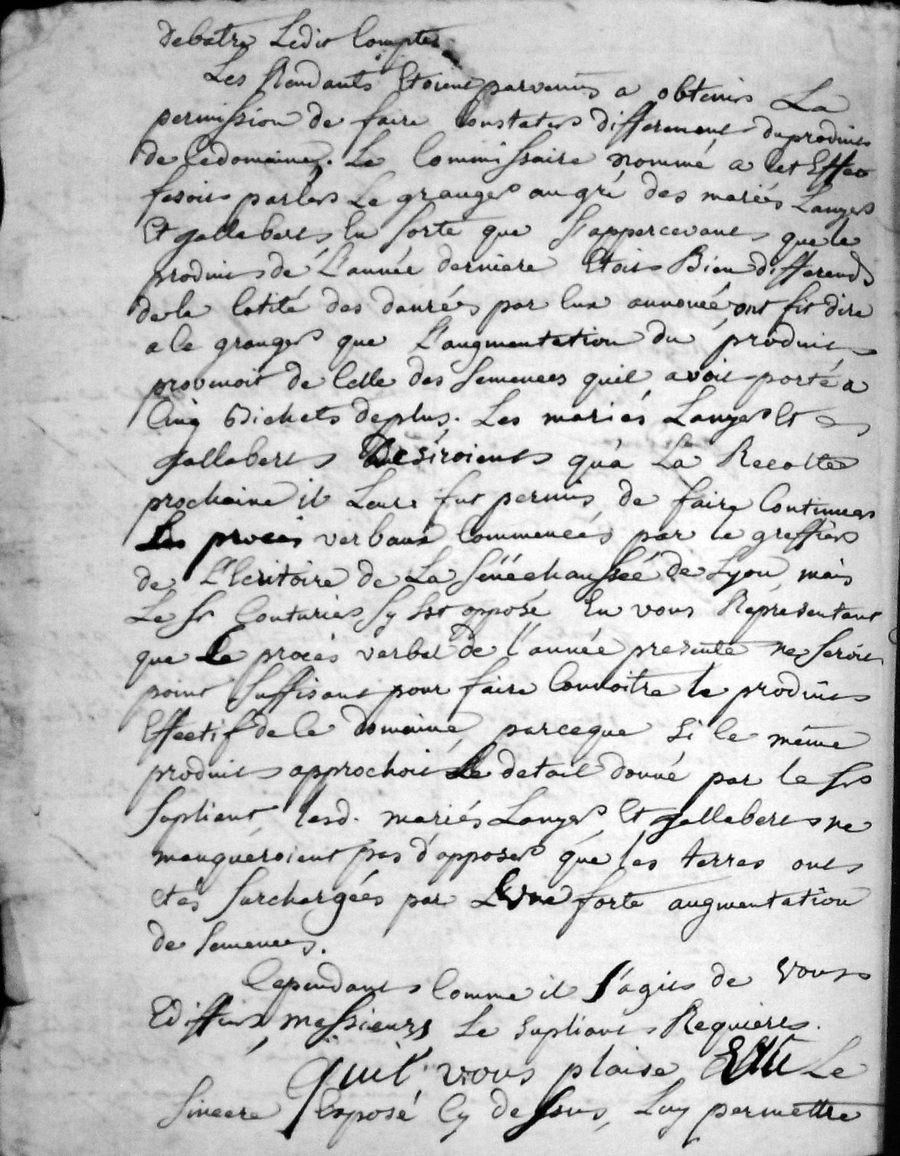 debatre Ledit Compte.
Les Rendants Etoient parvenus a obtenir La
permission de faire Constater differement du produit
de Ce domaine. Le Commissaire nommé a Cet Effet
fesoit parler Le granger au gré des mariés Lanyer
Et gallebert, En sorte que S'appercevant que le
produit de L'année derniere Etoit Bien differend
de la Cotité des danrées par Eux annoncé, ont fit dire
a le granger que L'augmentation du produit
provenoit de Celle des Semences quil avoit porté a
Cinq Bichets de plus. Les mariés Lanyer Et
gallebert Desiroient qu'a La Recolte
prochaine il Leur fut permis de faire Continuer
Les procès verbaux Commencés par le greffier
de L'Ecritoire de La Sénéchaussée de Lyon, mais
Le Sr Couturier Sy Est opposé En vous Representant
que Le procès verbal de l'année presente ne Seroit
point Suffisant pour faire Connoitre le produit
Effectif de le domaine, parceque Si le même
produit approchoit Le detail donné par le Sr
Supliant Lesd. mariés Lanyer Et gallebert ne
manqueroient pas d'opposer que les terres ont
etés Surchargées par Une forte augmentation
de Semences.
Cependant Comme il S'agit de Vous
Ediffier, messieurs Le Supliant Requiert.
Quil vous plaise Le
Sincere Exposé Cy dessus, Luy permettre